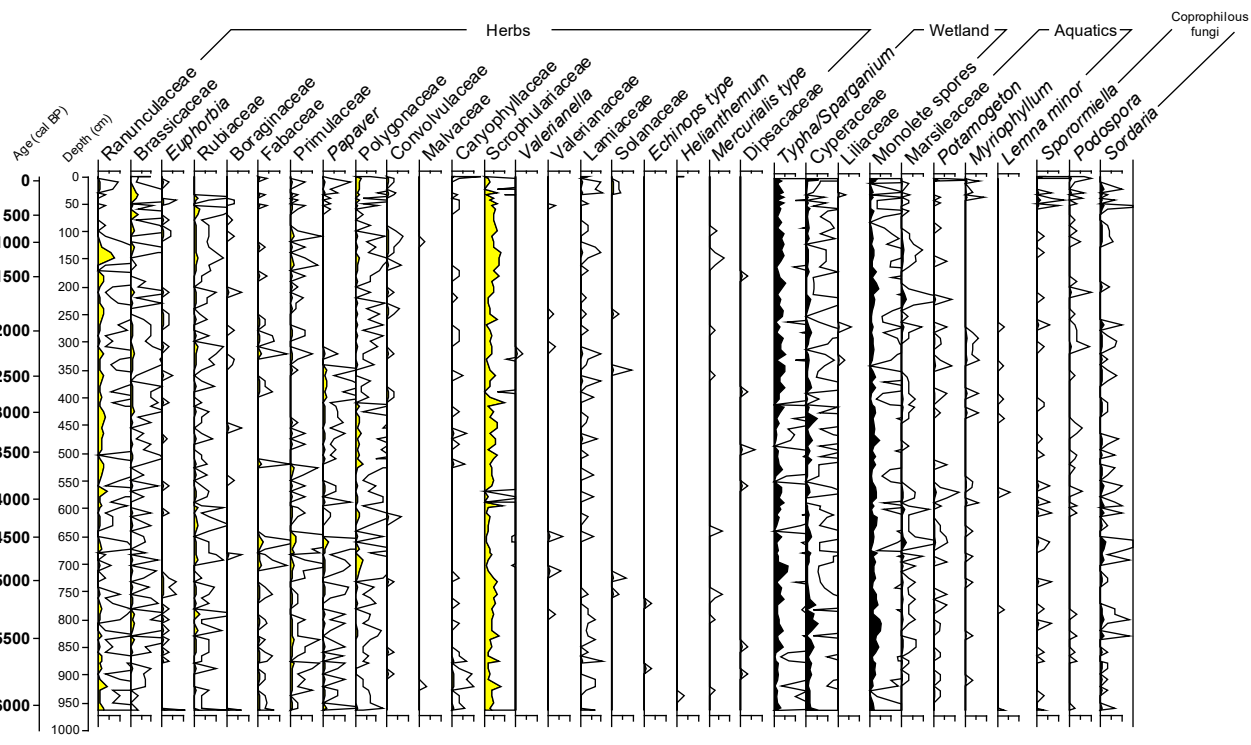 Herbs
Wetland
Aquatics
Coprophilous
fungi
Age (cal BP)
Depth (cm)
Ranunculaceae
Brassicaceae
Euphorbia
Rubiaceae
Boraginaceae
Fabaceae
Primulaceae
Papaver
Polygonaceae
Convolvulaceae
Malvaceae
Caryophyllaceae
Scrophulariaceae
Valerianella
Valerianaceae
Lamiaceae
Solanaceae
Echinops type
Helianthemum
Mercurialis type
Dipsacaceae
Typha/Sparganium
Cyperaceae
Liliaceae
Monolete spores
Marsileaceae
Potamogeton
Myriophyllum
Lemna minor
Sporormiella
Podospora
Sordaria
0
500
1000
1500
2000
2500
3000
3500
4000
4500
5000
5500
6000
0
50
100
150
200
250
300
350
400
450
500
550
600
650
700
750
800
850
900
950
1000